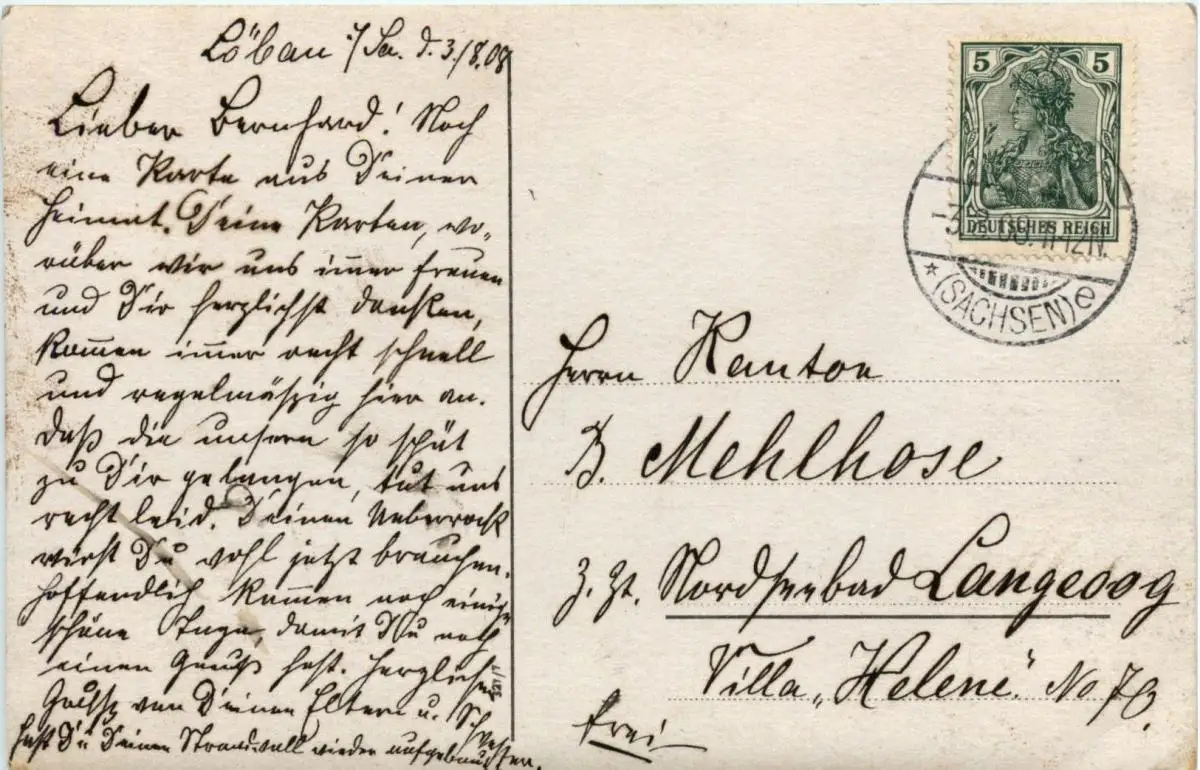 Löbau i/Sa. d. 3./8.08
Lieber Bernhard! Noch
eine Karte aus Deiner
Heimat. Deine Karten, wo-
rüber wir uns immer freuen
und Dir herzlichst danken,
kommen immer recht schnell
und regelmäszig hier an.
Daß die unsern so spät
zu Dir gelangen, tut uns
recht leid. Deinen Ueberrock
wirst Du wohl jetzt brauchen.
Hoffendlich kommen noch einige
schöne Tage, damit Du noch
einen Genuß hast. Herzlichen
Grusz von Deinen Eltern u. Schwester.
Hast Du Deinen Strandwall wieder aufgebaut
5
5
DEUTSCHES REICH
-3.8.08.11-12N.
*(SACHSEN)e
Herrn Kantor
B. Mehlhose
z. Zt. Nordseebad Langeoog
Villa „Helene" No
frei